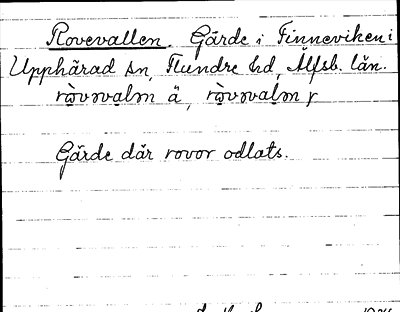 Rovevallen. Gärde i Finneviken i
Upphärad sn, Flundre hd, Älfsb. län.
rὼvəvaḷən ä, rὼvəvaḷən y
Gärde där rovor odlats.